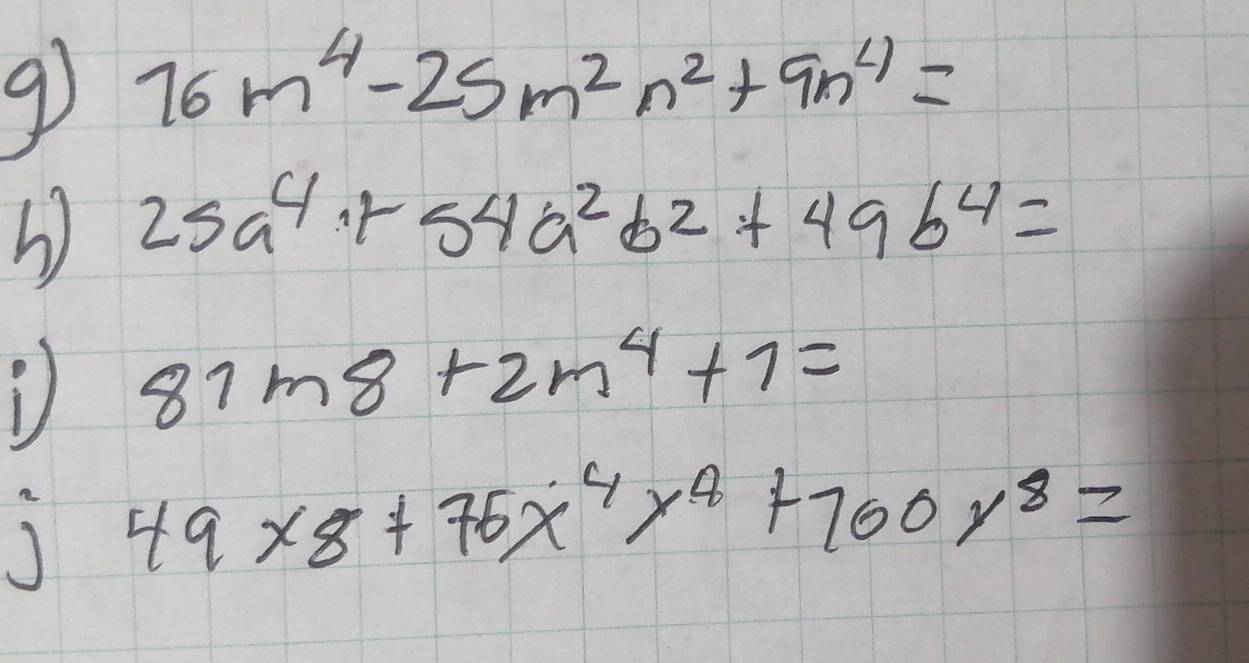 g) 16m⁴-25m²n²+9n⁴=
h) 25a⁴+54a²b²+49b⁴=
i) 81m8+2m⁴+1=
j 49x8+76x⁴y⁴+100y⁸=